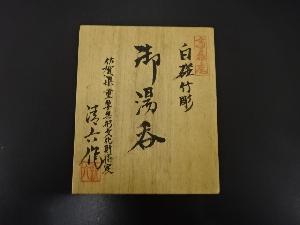 白磁竹彫
御湯呑
佐賀県重要無形文化財保持
清六作